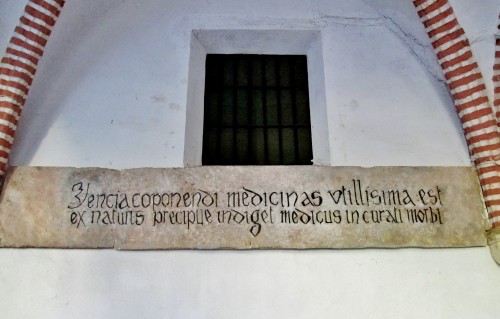 Ziencia coponendi medicinas vtillisima est
ex naturis precipue indiget medicus in curali morbi